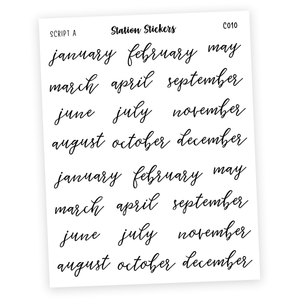 SCRIPT A Station Stickers C010
january february may
march april september
june july november
august october december
january february may
march april september
june july november
august october december